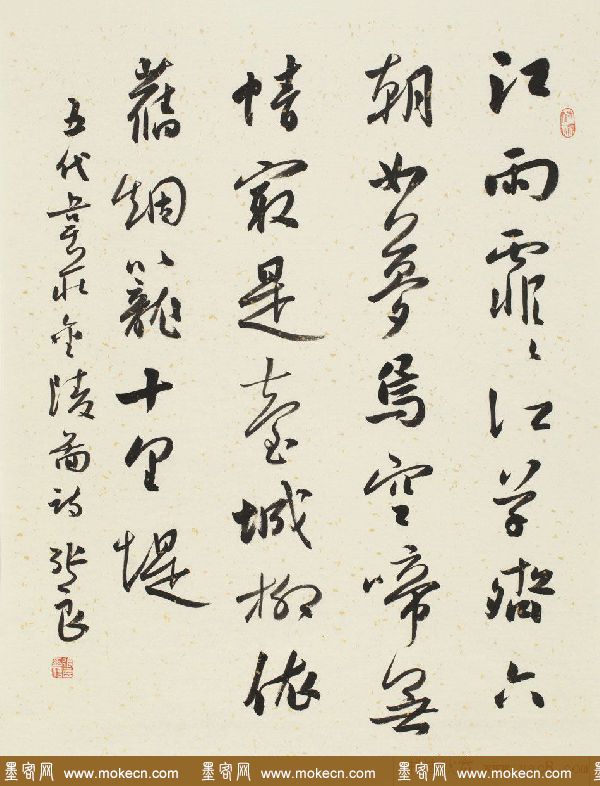 江雨霏〻江草齊六
朝如夢鳥空啼無
情冣是臺城柳依
舊烟籠十里堤
五代韋莊金陵圖詩 張良
墨客网 www.mokecn.com 墨客网 www.mokecn.com 墨客网 www.mokecn.com